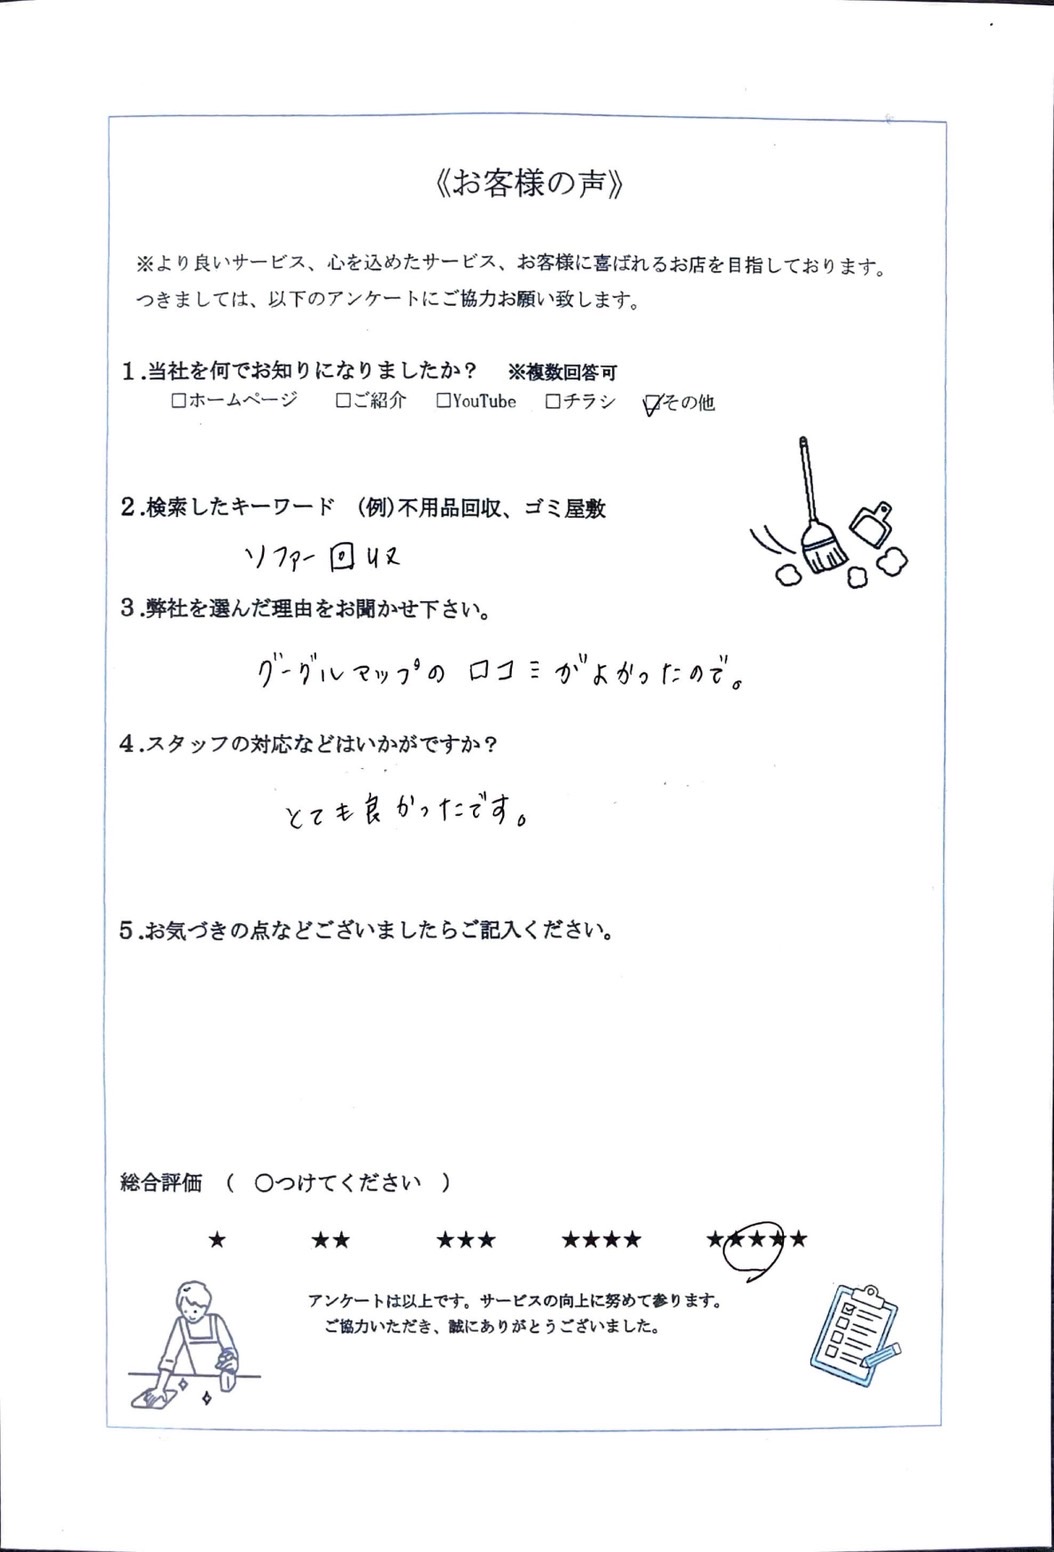 《お客様の声》
※より良いサービス、心を込めたサービス、お客様に喜ばれるお店を目指しております。
つきましては、以下のアンケートにご協力お願い致します。
1.当社を何でお知りになりましたか？　※複数回答可
□ホームページ　□ご紹介　□YouTube　□チラシ　☑その他
2.検索したキーワード　(例)不用品回収、ゴミ屋敷
ソファー回収
3.弊社を選んだ理由をお聞かせ下さい。
グーグルマップの口コミがよかったので。
4.スタッフの対応などはいかがですか？
とても良かったです。
5.お気づきの点などございましたらご記入ください。
総合評価　(　〇つけてください　)
★　★★　★★★　★★★★　★★★★★
アンケートは以上です。サービスの向上に努めて参ります。
ご協力いただき、誠にありがとうございました。